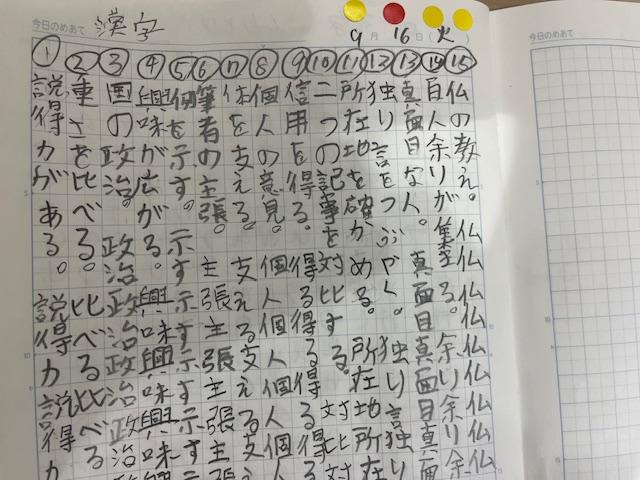 今日のめあて 漢字
9月16日(火)
今日のめあて
①説得力がある。説得力説得力
②重さを比べる。比べる比べる
③国の政治。政治政治政治政治
④興味が広がる。興味興味興味興
⑤例を示す。示す示す示す示す示
⑥筆者の主張。主張主張主張主張
⑦体を支える。支える支える支え
⑧個人の意見。個人個人個人個人
⑨信用を得る。得る得る得る得る
⑩二つの記事を対比する。対比対
⑪所在地を確かめる。所在地所在
⑫独り言をつぶやく。独り言独り
⑬真面目な人。真面目真面目真面
⑭百人余りが集まる。余り余り余
⑮仏の教え。仏仏仏仏仏仏仏仏仏